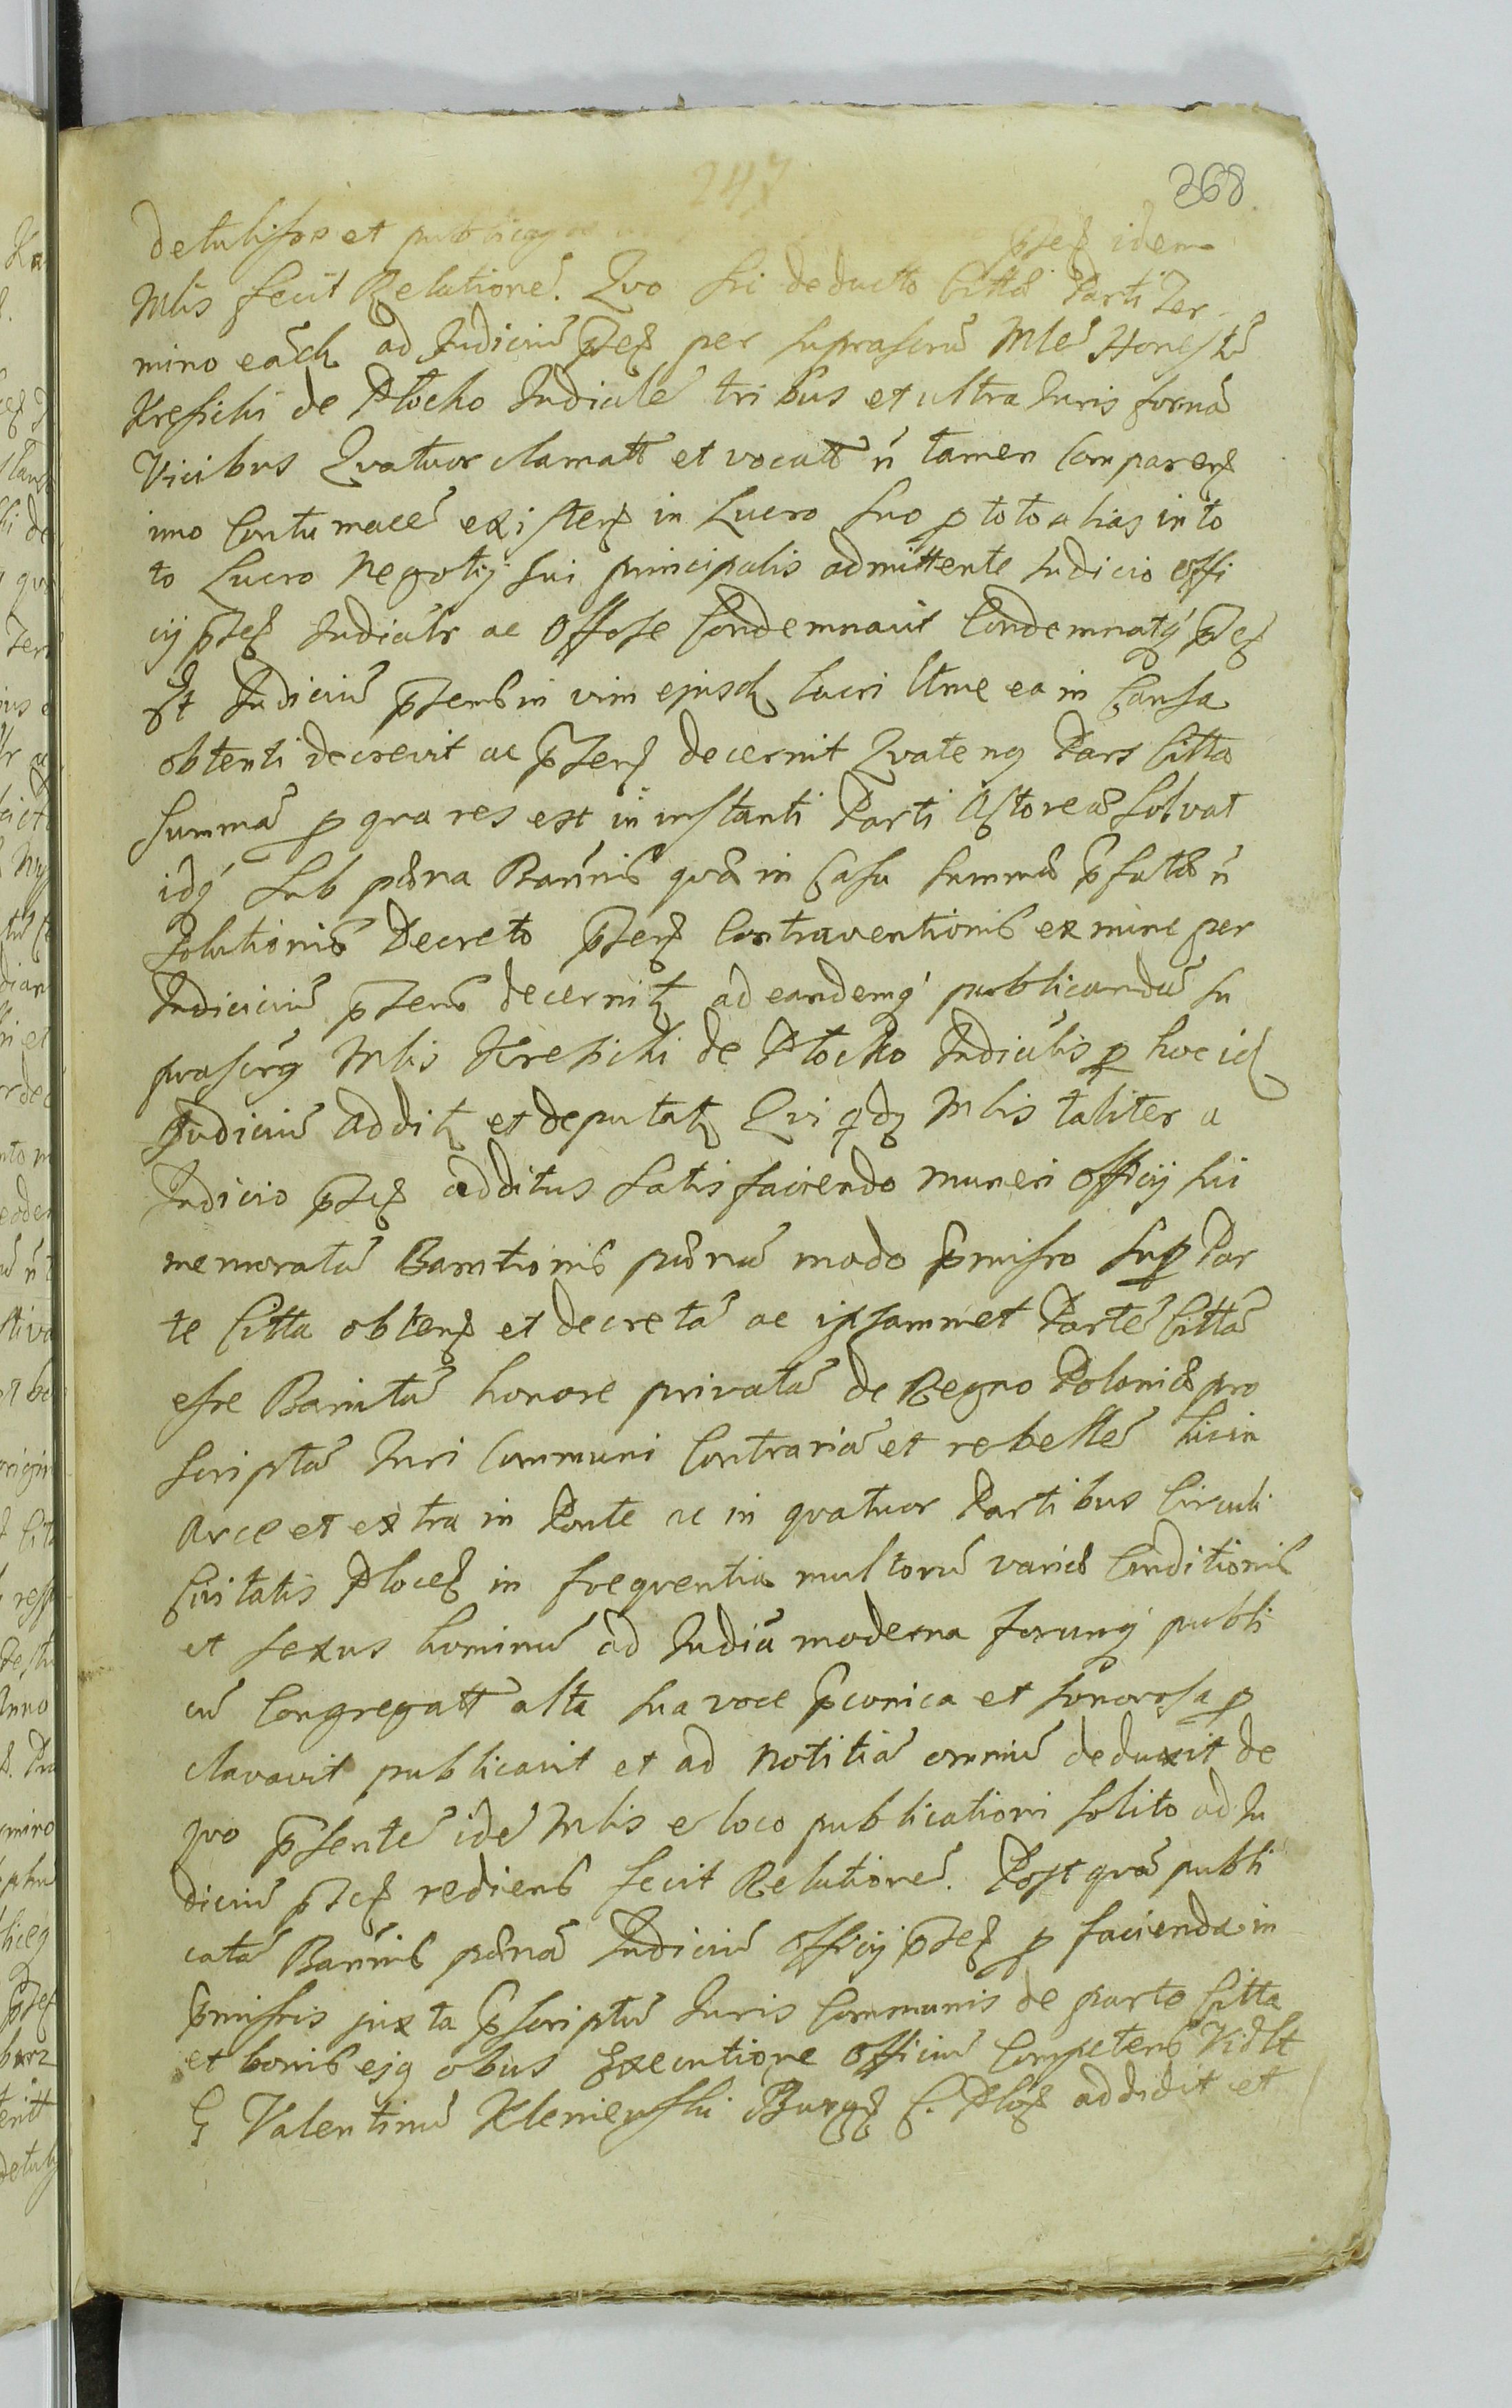 247
368
detulisse et publicasse pñtej idem
Mlis fecit Relationẽ. Qvo sic deducto Cittæ Parti Ter
mino eãdq ad Judiciũ pñtej per suprascriũ Mlẽ Honestũ
Kresicki de Plocko Judicialẽ tribus et ultra Juris formã
Vicibus Qvatuor clamatt et vocatt ñ tamen comparenj
imo Contumacẽ existenj in Lucro suo p toto alias in to
to Lucro Negotij sui principalis admittente Judicio offi
cij pñtej Judicialr ac Offose Condemnavit Condemnatq́ pñtej
Et Judiciũ pñtens in vim ejusdq Lucri ltme ea in Causa
obtenti decrevit ac pñtenj decernit Qvatenq Pars Citta
summã p qua res est in instanti Parti Actoreæ solvat
idq́ sub pœna Bannis quæ in Casu summæ pfatæ ñ
solutionis Decreto pñtenj Contraventionis ex nunc per
Judiciciũ pñtens decernitq ad eandemq́ publicandã su
prascrq Mlis Kresicki de Plocko Judicialis p hoc idq
Judiciũ additq et deputatq Qui qdq Mlis taliter a
Judicio pñtej additus satisfaciendo muneri Officij sui
memoratã Bannitionis pœnã modo pmisso sup Par
te Citta obtenj et decretã ac ipsammet Partẽ Cittã
esse Banitã honore privatã de Regno Poloniæ pro
scriptã Juri Communi Contrariã et rebellẽ hic in
Arce et extra in Ponte ac in qvatuor Partibus Circuli
Civitatis Plocej in freqventia multorũ variæ Conditionis
et sexus hominũ ad Judiã moderna forumq́ publi
cũ Congregatt alta sua voce pconica et sonorosa p
clavavit publicavit et ad notitiã omniũ deduxit de
qvo psentẽ idẽ Mlis e loco publicationi solito ad Ju
diciũ pñtej rediens fecit Relationẽ. Post quã publi
catã Bannis pœnã Judiciũ Officij pñtej p facienda in
pmissis juxta pscriptũ Juris Communis de parte Citta
et bonis ejq obus Executione Officiũ Competens Vidlt
G Valentinũ Kleniewski Burgej C. Plocj addidit et